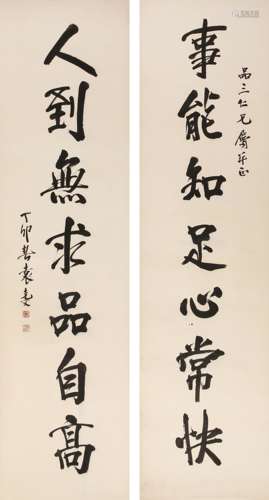 品三仁兄屬并正
事能知足心常快
人到無求品自高
丁卯